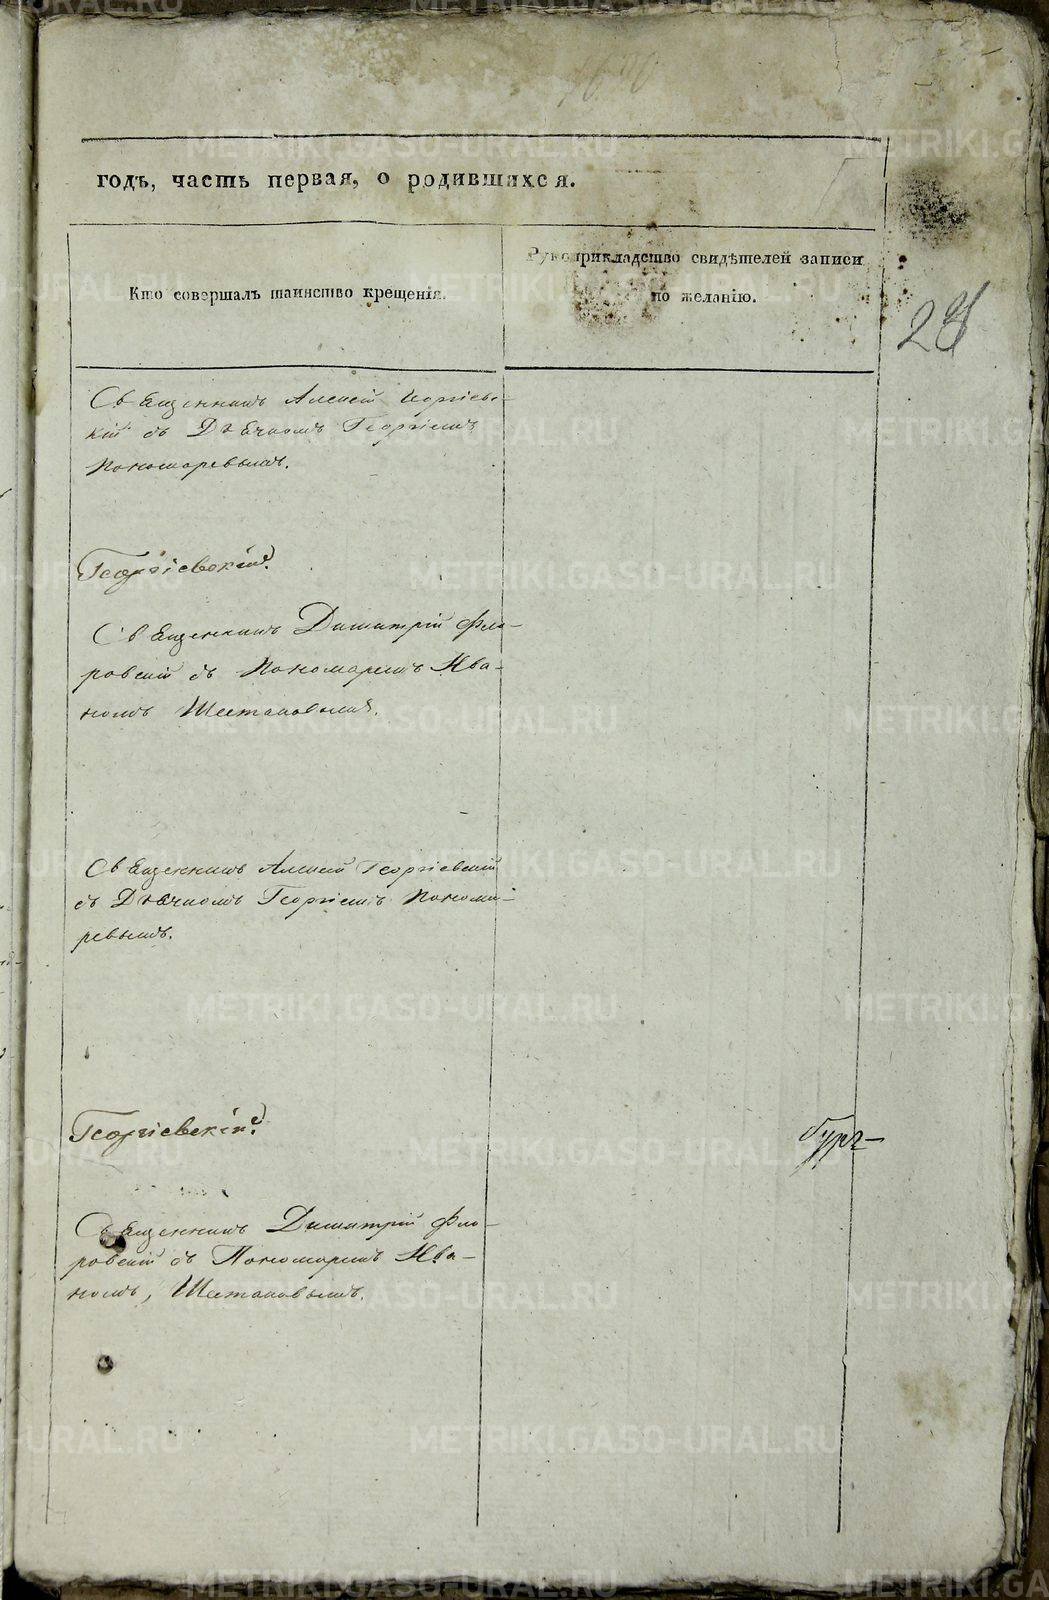 годъ, часть первая, о родившихся.
Кто совершалъ таинство крещенія.
Рукоприкладство свидѣтелей записи
по желанію.
28
Священникъ Алексѣй Георгіевс-
кій съ Дьячкомъ Георгіемъ
Пономаревымъ.
Георгіевскій.
Священникъ Димитрій Фло-
ровскій съ Пономаремъ Ива-
номъ Шестаковымъ.
Священникъ Алексѣй Георгіевскій
съ Дьячкомъ Георгіемъ Понома-
ревымъ.
Георгіевскій.
Священникъ Димитрій Фло-
ровскій съ Пономаремъ Ива-
номъ, Шестаковымъ.
METRIKI.GASO-URAL.RU